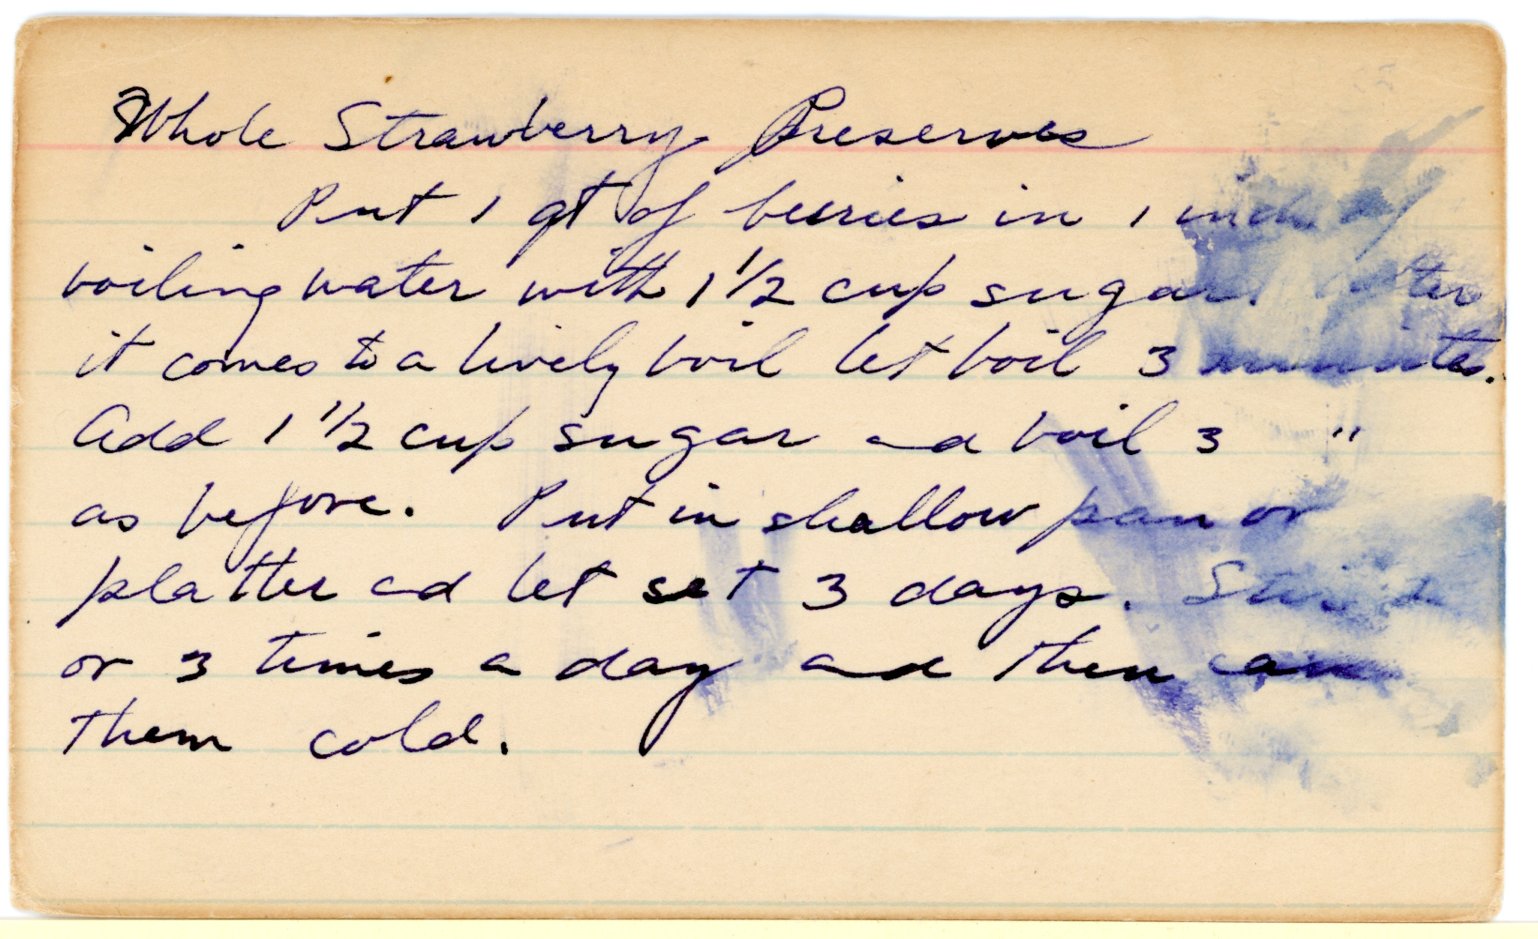 Whole Strawberry Preserves
Put 1 qt of berries in 1 inch of
boiling water with 1 1/2 cup sugar. After
it comes to a lively boil let boil 3 minutes.
Add 1 1/2 cup sugar and boil 3 "
as before. Put in shallow pan or
platter and let set 3 days. Stir
or 3 times a day and then can
them cold.